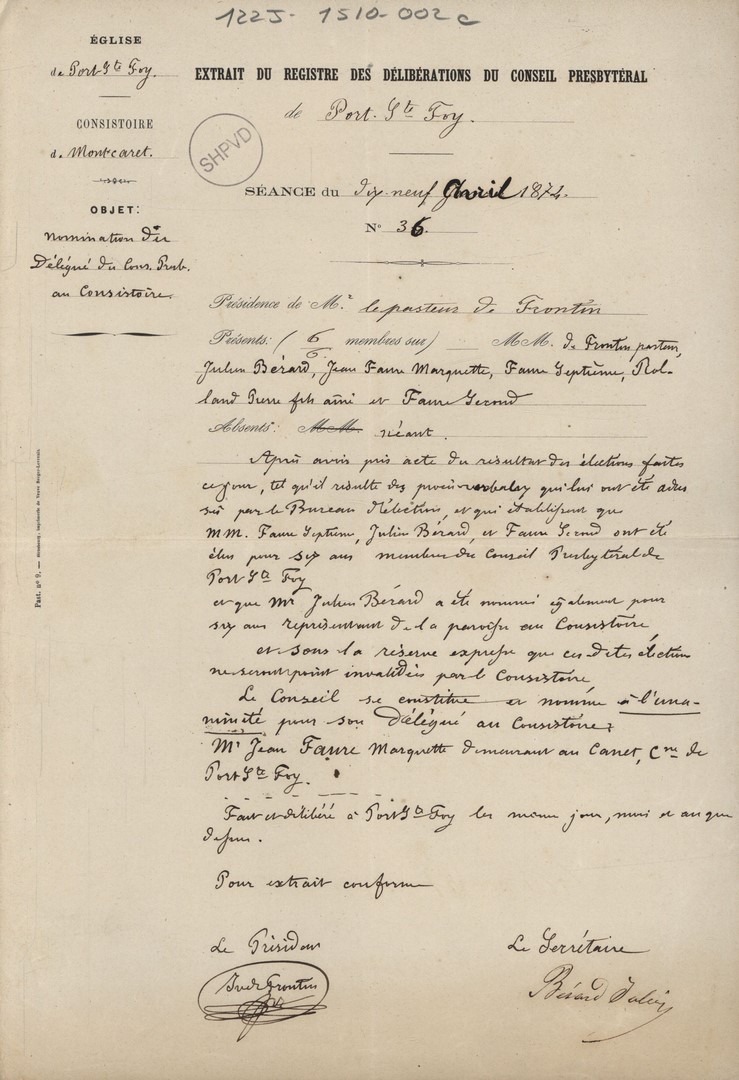 122J- 1510-002c
ÉGLISE
de Port Ste Foy.
CONSISTOIRE
de Montcaret.
OBJET:
nomination du
Délégué du Cons. Presb.
au Consistoire.
SHPVD
EXTRAIT DU REGISTRE DES DÉLIBÉRATIONS DU CONSEIL PRESBYTÉRAL
de Port. Ste Foy.
SÉANCE du dix-neuf Avril 1874.
N° 36.
Présidence de M.r le pasteur de Frontin
Présents: ( 6 membres sur 6 ) MM. de Frontin pasteur,
Julien Bérard, Jean Faure Marquette, Faure Septième, Rol-
land Pierre fils aîné et Faure Second
Absents: MM. néant.
Après avoir pris acte du résultat des élections faites
ce jour, tel qu'il résulte des procès verbaux qui lui ont été adres
sés par le Bureau d'élection, et qui établissent que
MM. Faure Septième, Julien Bérard, et Faure Second ont été
élus pour six ans membres du Conseil Presbytéral de
Port Ste Foy
et que Mr Julien Bérard a été nommé également pour
six ans représentant de la paroisse au Consistoire,
et sous la réserve expresse que ces dites élection
ne seront point invalidées par le Consistoire
Le Conseil se constitue et nomme à l'una-
nimité pour son Délégué au Consistoire;
Mr Jean Faure Marquette demeurant au Canet, Cne de
Port Ste Foy.
Fait et délibéré à Port Ste Foy les même jour, mois et an que
dessus.
Pour extrait conforme
Le Président
Le Secrétaire
de Frontin
Bérard Julien
Past. n° 9. — Strasbourg, imprimerie de Veuve Berger-Levrault